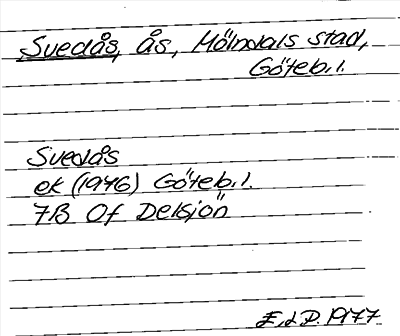 Svedås, ås, Mölndals stad,
Göteb.l.
Svedås
ek (1976) Göteb.l.
7B Of Delsjön
E.d.P. 1977